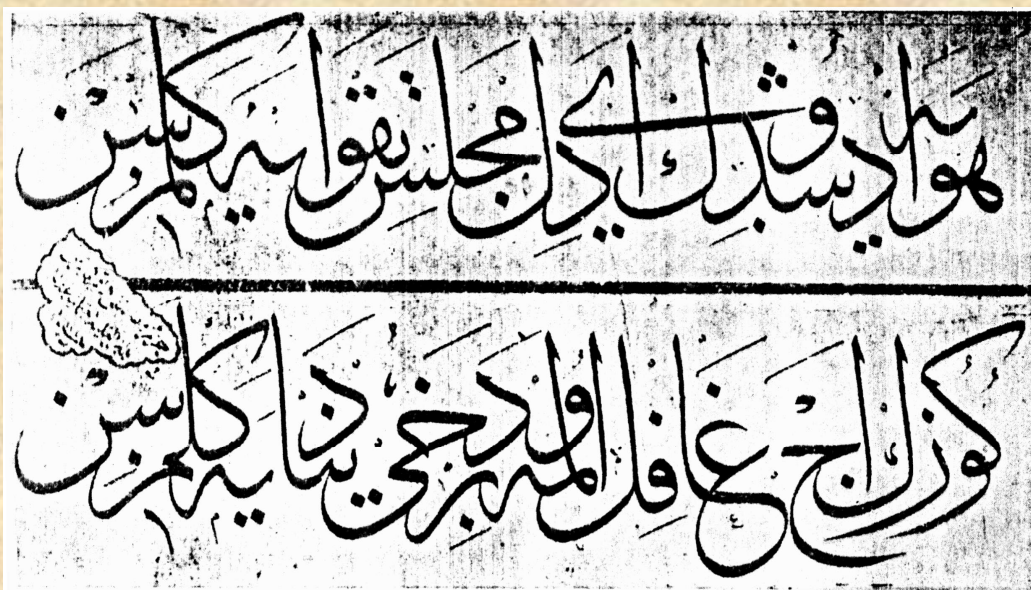 هوايه دوشدك اى دل مجلس تقوايه كلمزسن
كوزك اچ غافل اولمه بر دخى دنيايه كلمزسن